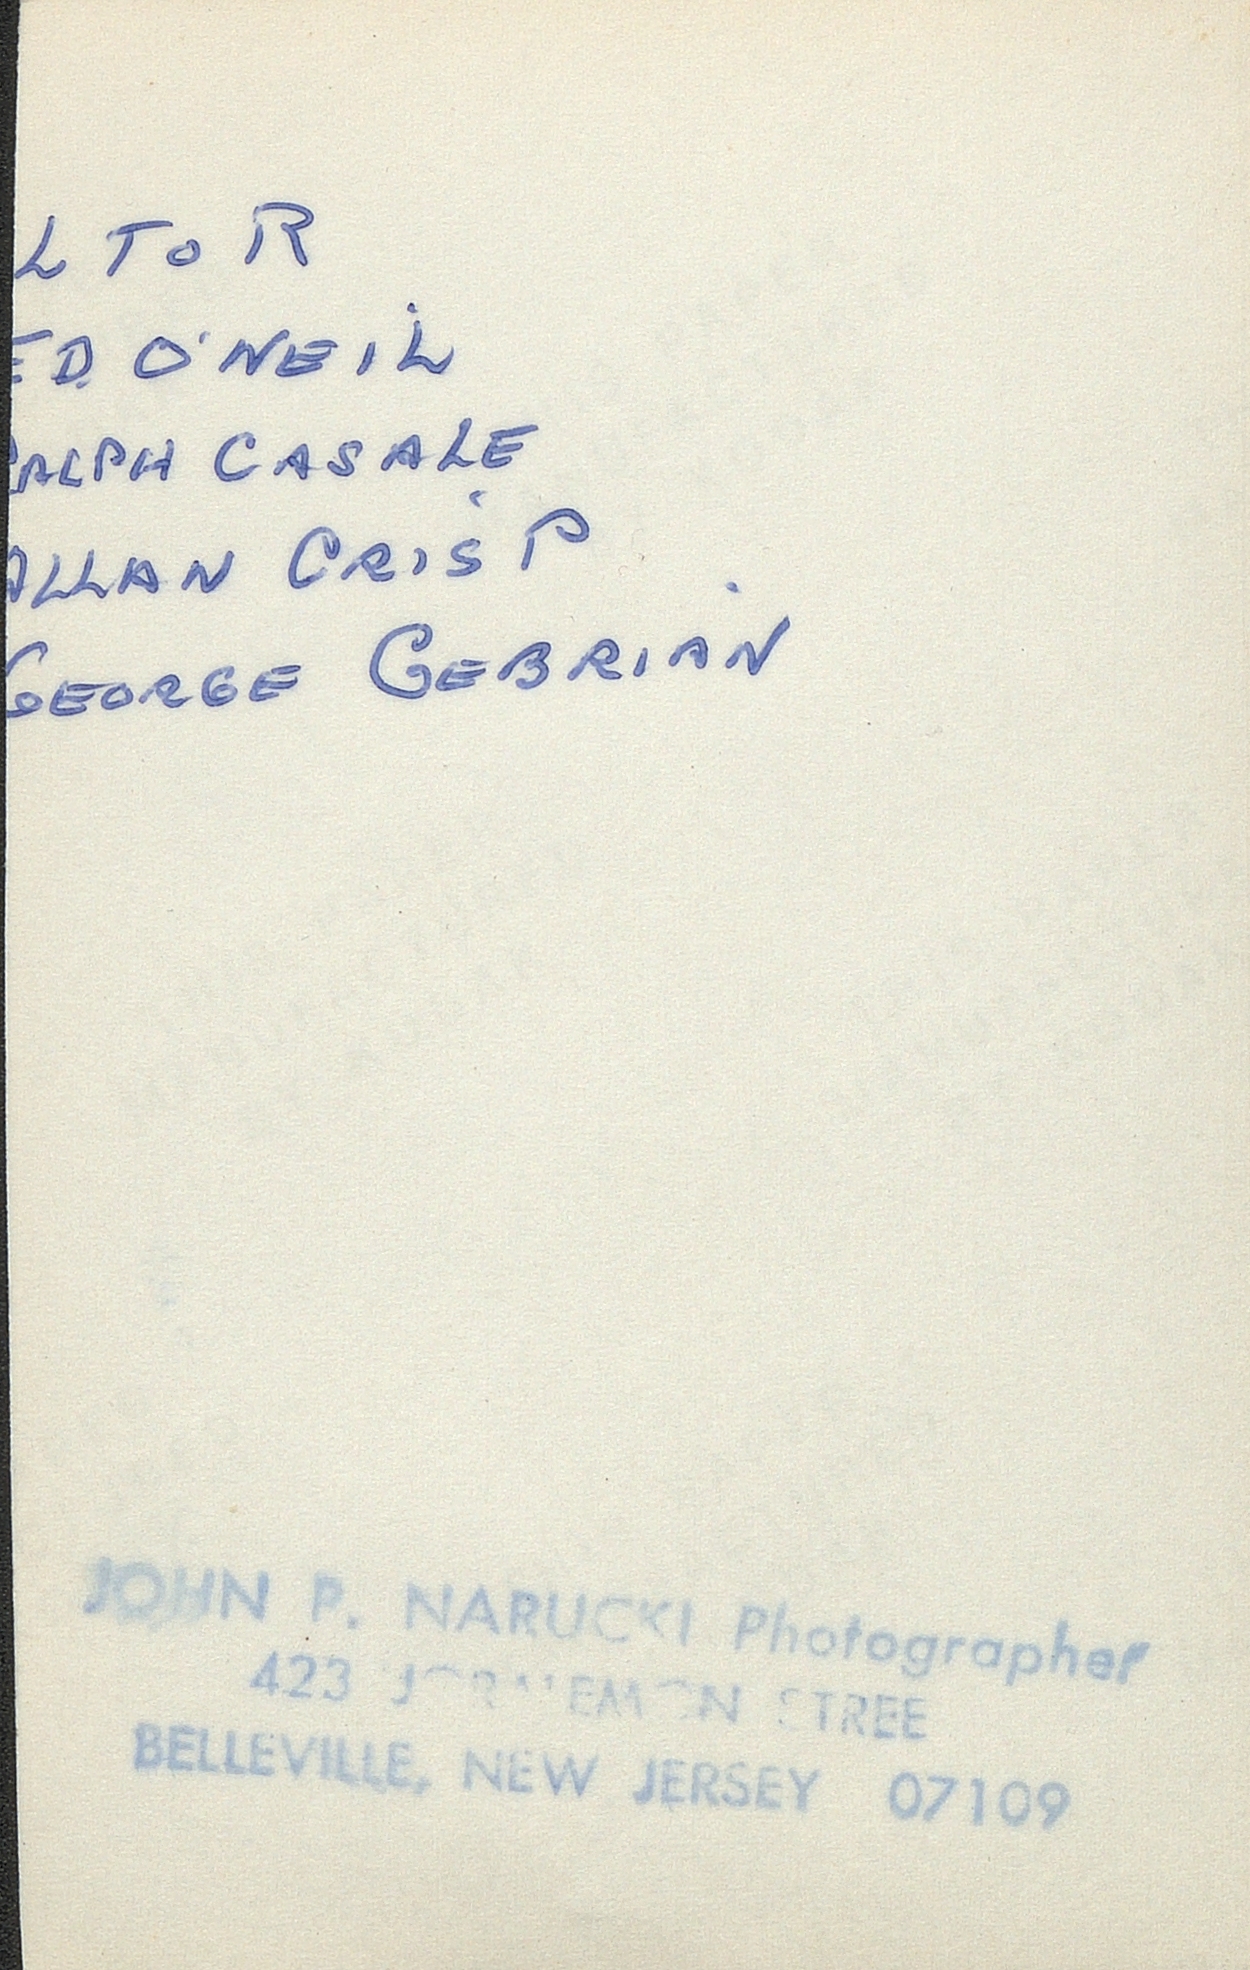 L TO R
ED O'NEIL
RALPH CASALE
ALLAN CRISP
GEORGE GEBRIAN
JOHN P. NARUCKI Photographer
423 JORALEMON STREE
BELLEVILLE, NEW JERSEY 07109